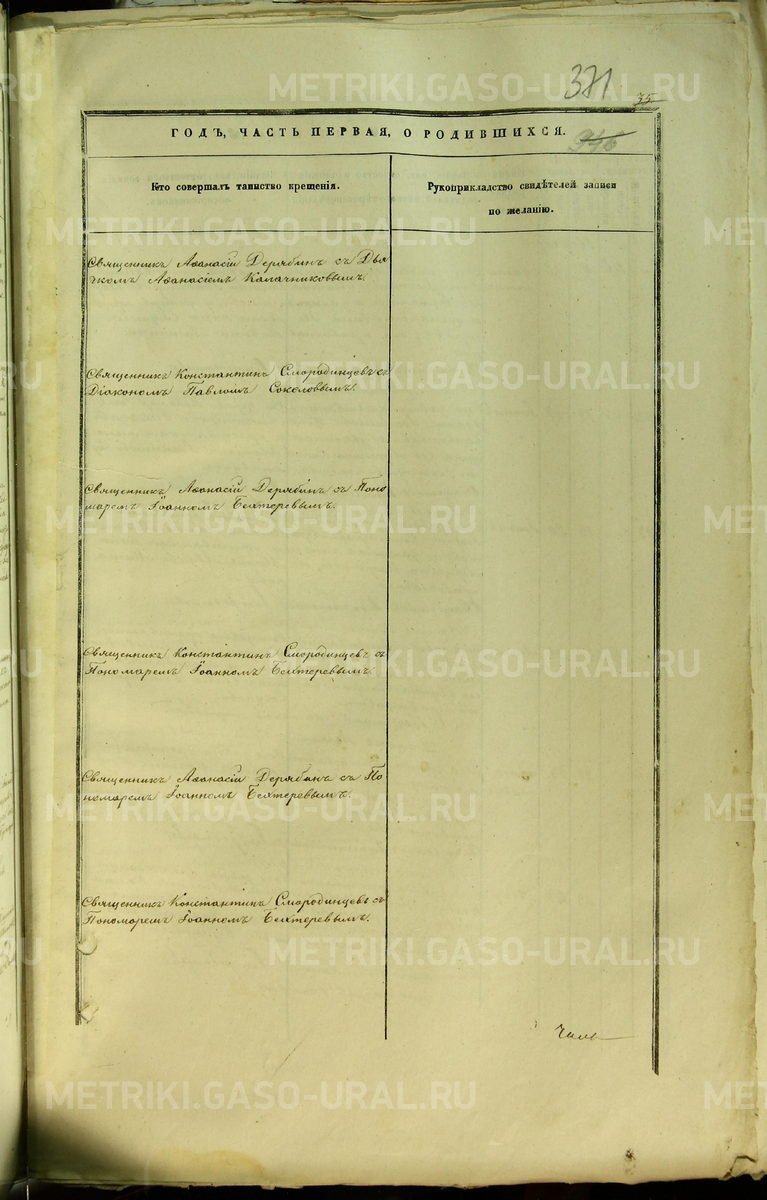 371
35.
ГОДЪ, ЧАСТЬ ПЕРВАЯ, О РОДИВШИХСЯ.
Кто совершалъ таинство крещенія.
Рукоприкладство свидѣтелей записи
по желанію.
Священникъ Аѳанасій Дерябинъ съ Дья
чкомъ Аѳанасіемъ Калачниковымъ.
Священникъ Константинъ Смородинцевъ съ
Діакономъ Павломъ Соколовымъ.
Священникъ Аѳанасій Дерябинъ съ Поно
маремъ Іоанномъ Бехтеревымъ.
Священникъ Константинъ Смородинцевъ съ
Пономаремъ Іоанномъ Бехтеревымъ.
Священникъ Аѳанасій Дерябинъ съ По
номаремъ Іоанномъ Бехтеревымъ.
Священникъ Константинъ Смородинцевъ съ
Пономаремъ Іоанномъ Бехтеревымъ.
METRIKI.GASO-URAL.RU